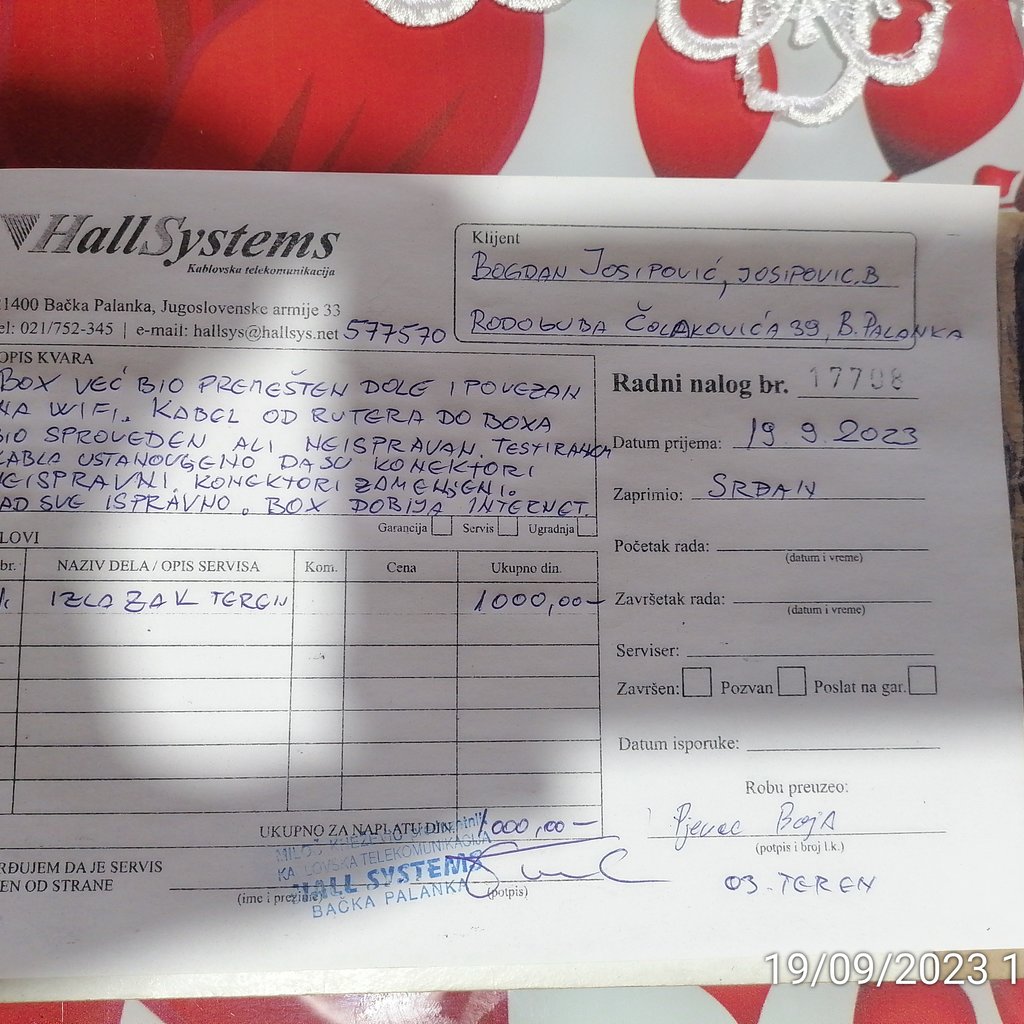 HallSystems
Kablovska telekomunikacija
1400 Bačka Palanka, Jugoslovenske armije 33
el: 021/752-345 | e-mail: hallsys@hallsys.net 577570
Klijent
BOGDAN JOSIPOVIĆ, JOSIPOVIC.B
RODOGUBA ČOLAKOVIĆA 39, B. PALANKA
OPIS KVARA
BOX VEĆ BIO PREMEŠTEN DOLE I POVEZAN
NA WIFI. KABEL OD RUTERA DO BOXA
BIO SPROVEDEN ALI NEISPRAVAN. TESTIRANJEM
KABLA USTANOVGENO DA SU KONEKTORI
NEISPRAVNI. KONEKTORI ZAMENJENI.
SAD SVE ISPRAVNO. BOX DOBIJA INTERNET.
Garancija Servis Ugradnja
Radni nalog br. 17708
Datum prijema: 19 9. 2023
Zaprimio: SRĐAN
Početak rada:
(datum i vreme)
Završetak rada:
(datum i vreme)
Serviser:
Završen: Pozvan Poslat na gar.
Datum isporuke:
Robu preuzeo:
Pjevac BojA
(potpis i broj l.k.)
03. TEREN
LOVI
br. NAZIV DELA / OPIS SERVISA Kom. Cena Ukupno din.
IZLAZAK TEREN 1000,00-
UKUPNO ZA NAPLATU DIN. 1000,00-
RĐUJEM DA JE SERVIS
EN OD STRANE
(ime i prezime)
(potpis)
KABLOVSKA TELEKOMUNIKACIJA
HALL SYSTEMS
BAČKA PALANKA
19/09/2023 1